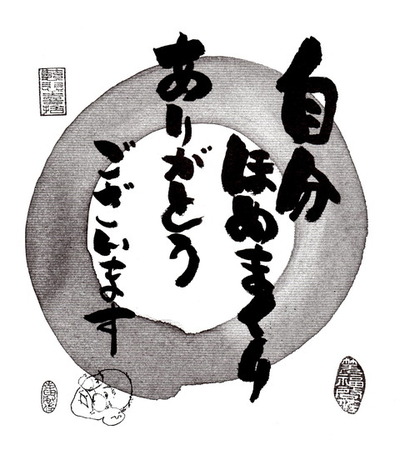 自分
ほめまくり
ありがとう
ございます